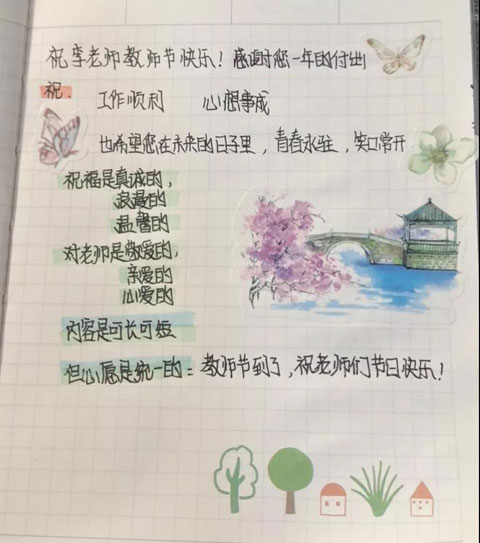 祝李老师教师节快乐！感谢您一年的付出
祝：
工作顺利 心想事成
也希望您在未来的日子里，青春永驻，笑口常开
祝福是真诚的，
浪漫的
温馨的
对老师是敬爱的，
亲爱的
心爱的
内容是可长可短
但心愿是统一的：教师节到了，祝老师们节日快乐！